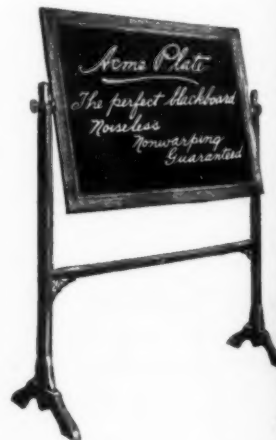 Acme Plate
The perfect blackboard
Noiseless
Nonwarping
Guaranteed